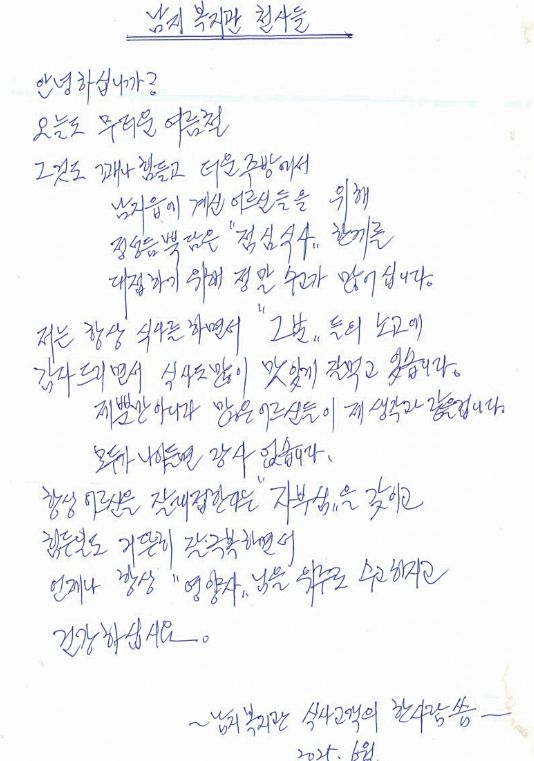 남지 복지관 천사들
안녕하십니까?
오늘도 무더운 여름철
그것도 꽤나 힘들고 더운 주방에서
남지읍에 계신 어르신들을 위해
정성듬뿍 담은 "점심식사" 한끼를
대접하기 위해 정말 수고가 많이십니다.
저는 항상 식사를 하면서 "그분"들의 노고에
감사드리면서 식사도 많이 맛있게 잘먹고 있습니다.
제뿐만아니라 많은 어르신들이 제 생각과 같을겁니다.
모두가 나이들면 장사 없습니다.
항상 어르신을 잘대접한다는 "자부심"을 갖이고
힘든일도 거뜬히 잘극복하면서
언제나 항상 "영양사"님을 위주로 수고하시고
건강하십시요.
~남지복지관 식사고객의 한사람 씀~
2025. 6월